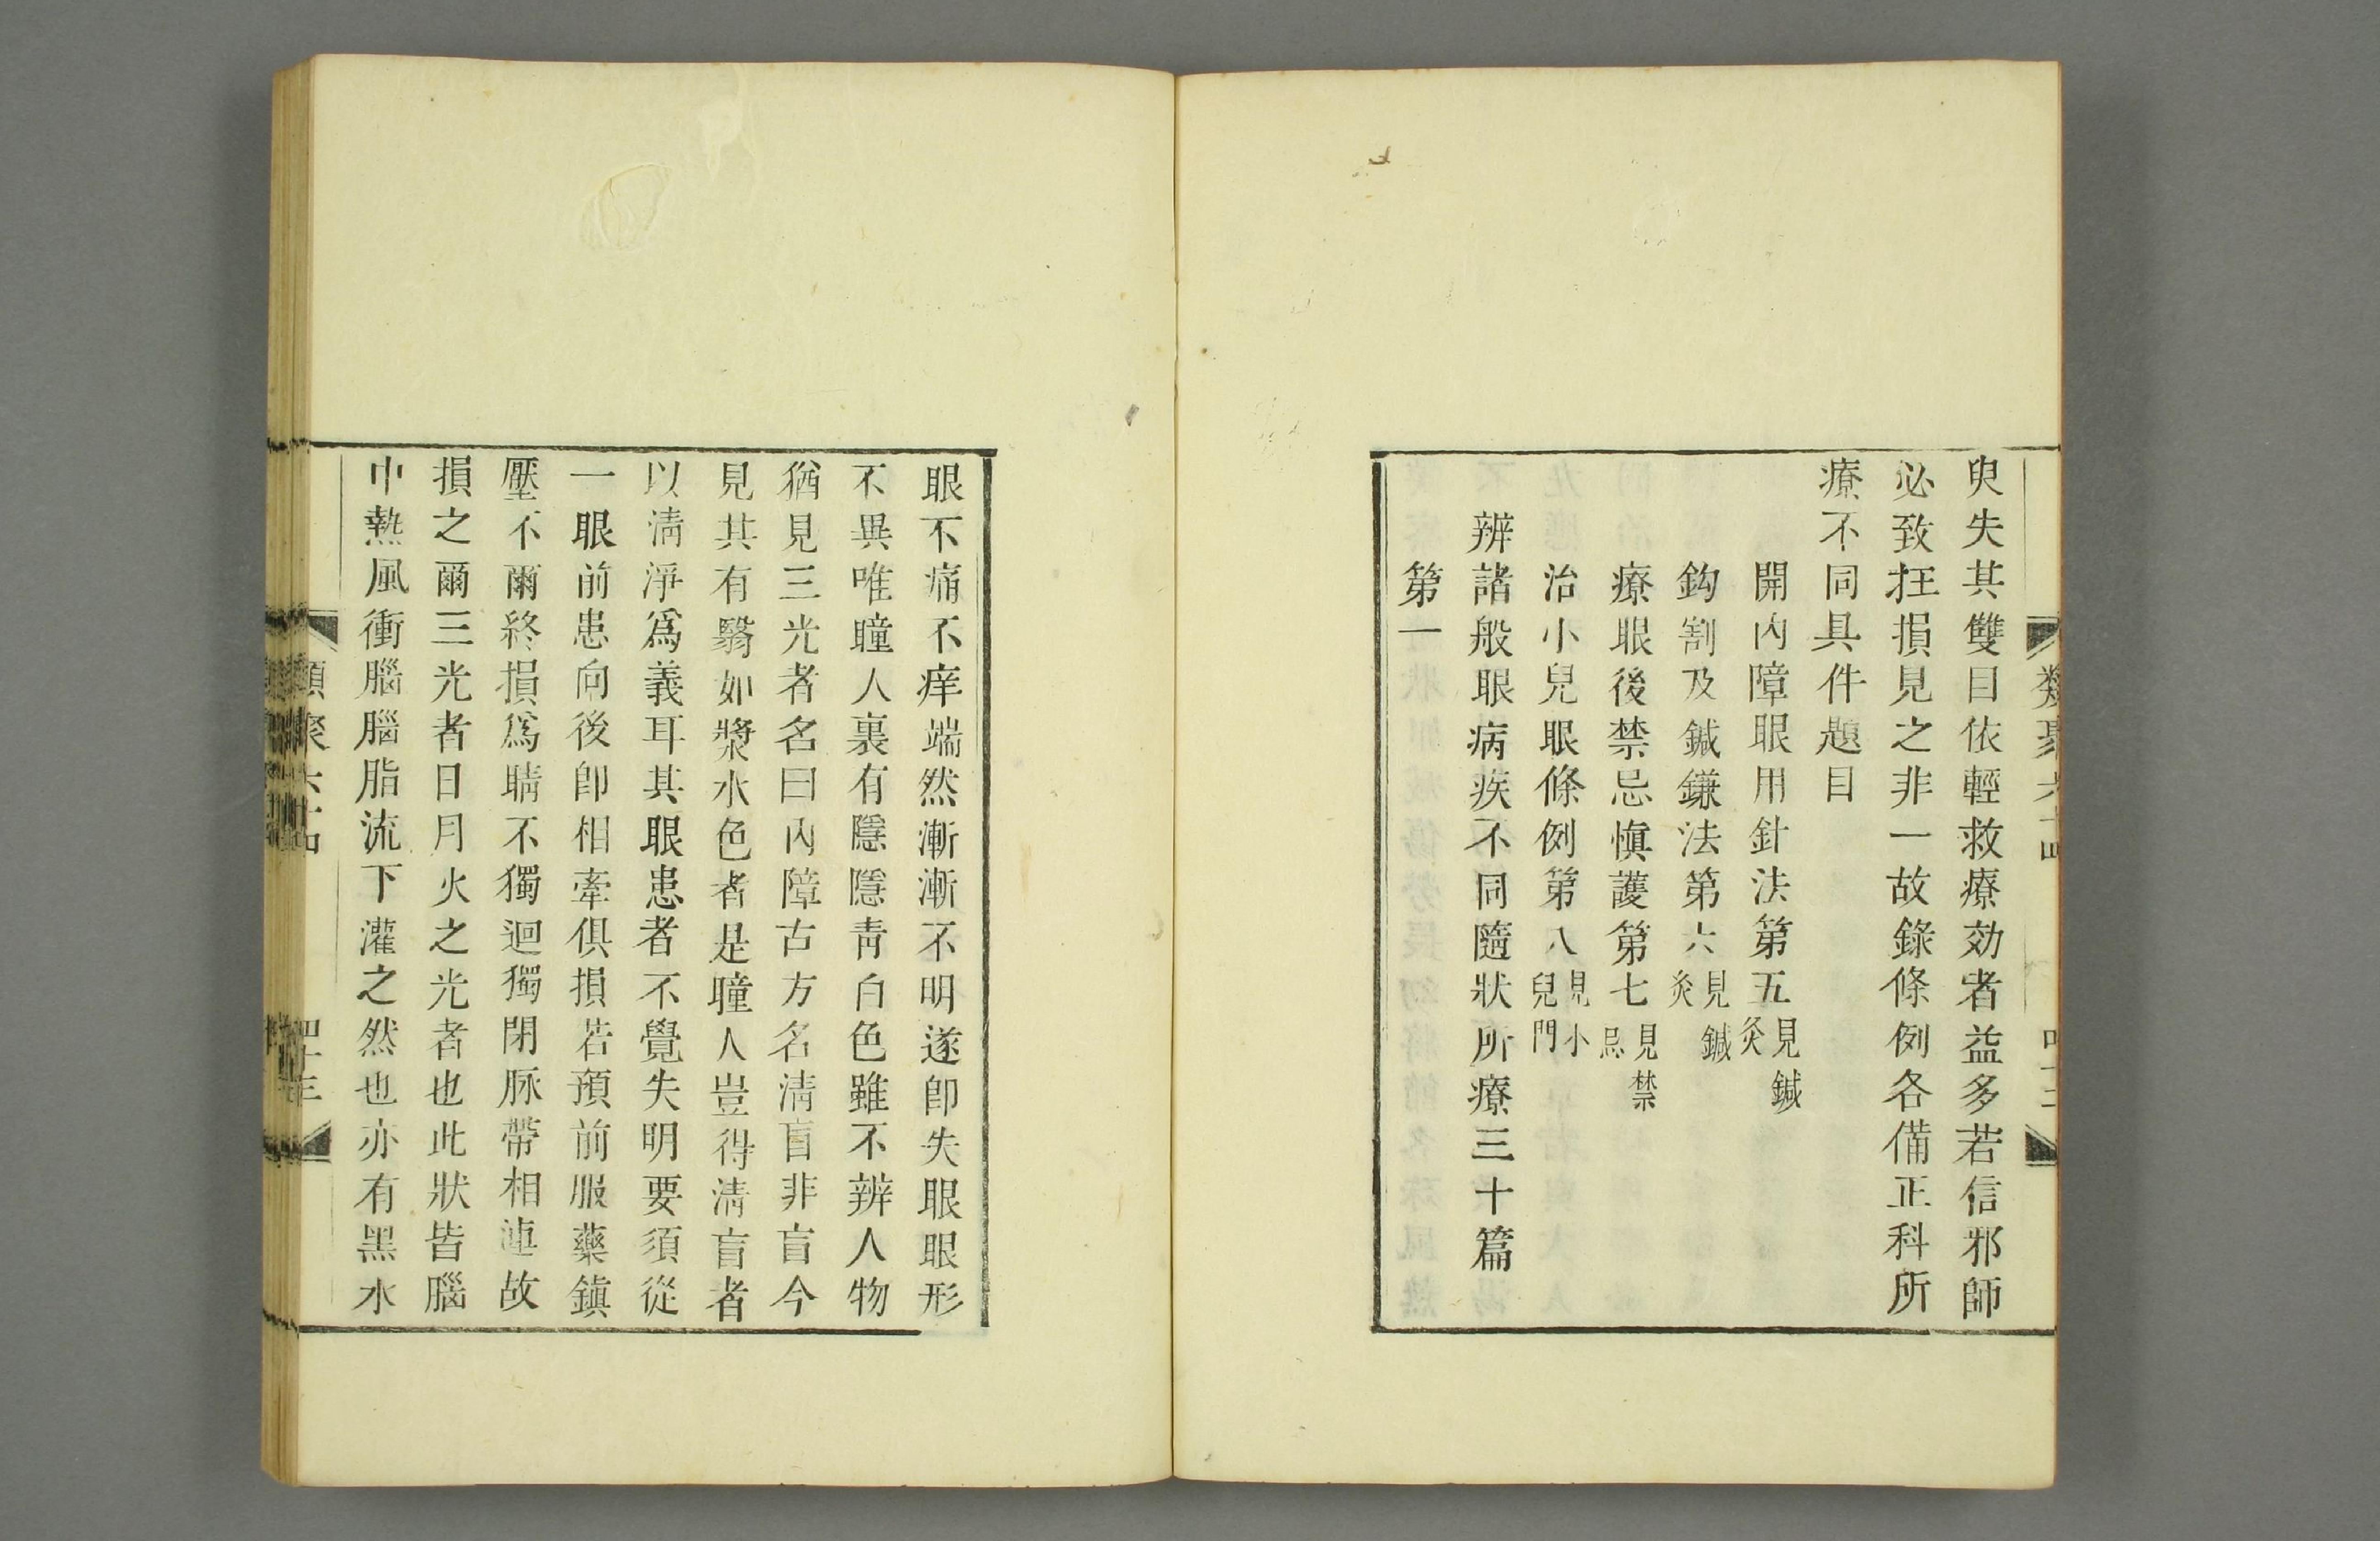 臾失其雙目依輕救療効者益多若信邪師
必致抂損見之非一故錄條例各備正科所
療不同具件題目
開內障眼用針法第五見鍼灸
鈎割及鍼鎌法第六見鍼灸
療眼後禁忌愼護第七見禁忌
治小兒眼條例第八見小兒門
辨諸般眼病疾不同隨狀所療三十篇
第一
眼不痛不痒端然漸漸不明遂卽失眼眼形
不異唯瞳人裏有隱隱靑白色雖不辨人物
猶見三光者名曰內障古方名淸盲非盲今
見其有翳如漿水色者是瞳人豈得淸盲者
以淸淨爲義耳其眼患者不覺失明要須從
一眼前患向後卽相牽俱損若預前服藥鎭
壓不爾終損爲睛不獨迴獨閉脉帶相連故
損之爾三光者日月火之光者也此狀皆腦
中熱風衝腦腦脂流下灌之然也亦有黑水
類聚六十四